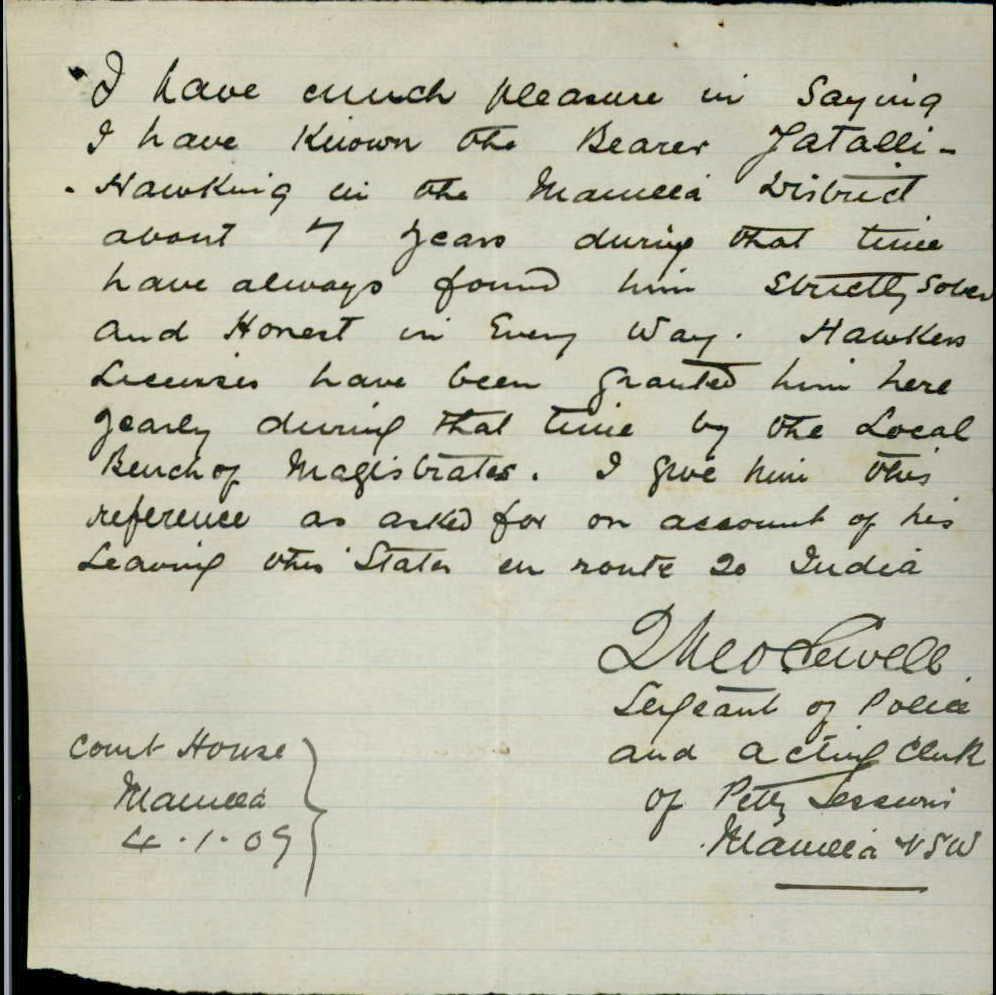 I have much pleasure in Saying
I have Known the Bearer Fatalli -
- Hawking in the Manilla District
about 7 years during that time
have always found him Strictly Sober
and Honest in Every Way. Hawkers
Licenses have been granted him here
yearly during that time by the Local
Bench of Magistrates. I give him this
reference as asked for on account of his
Leaving this States en route to India
Theo Sewell
Sergeant of Police
and acting Clerk
of Petty Sessions
Manilla NSW
Court House
Manilla
4.1.09